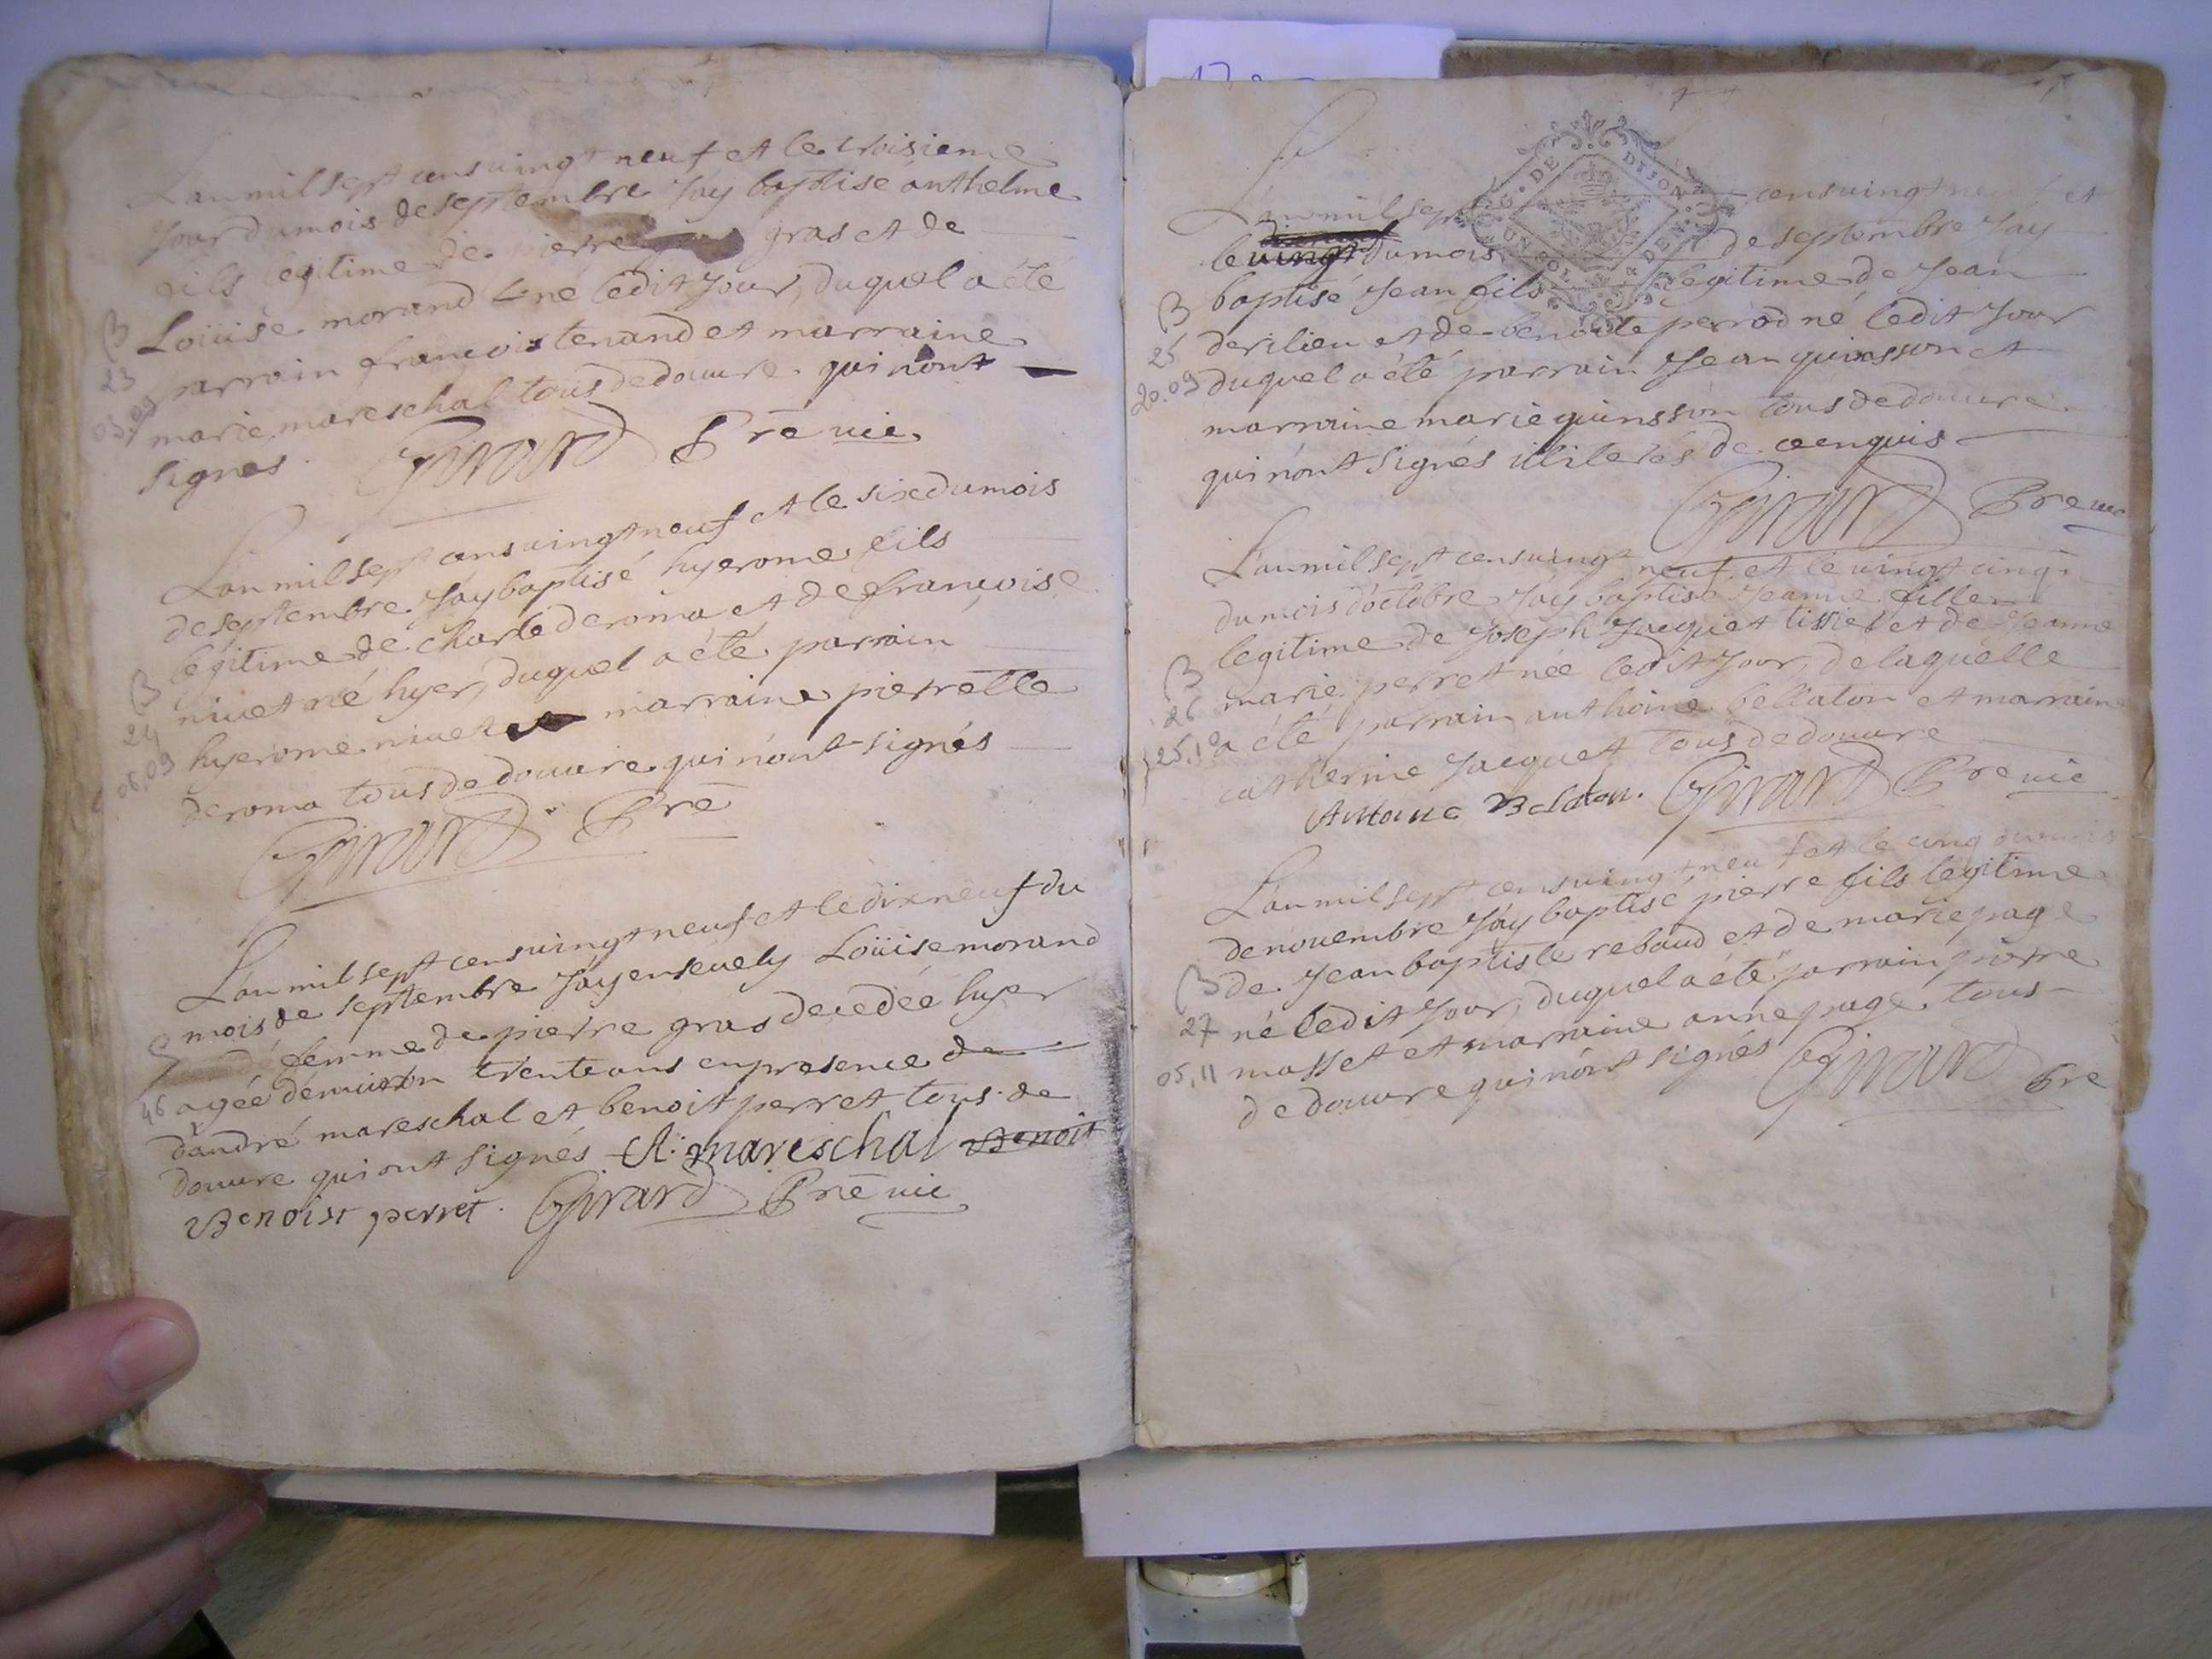 L'an mil sept cens vingt neuf et le troisieme
jour du mois de septembre jay baptisé anthelme
fils legitime de pierre gras et de
Loüise morand né ledit jour, duquel a été
parrain françois tenand et marraine
marie mareschal tous de douvre qui n'ont
signés. Girard Prē vic.
B
23
03.09
L'an mil sept cens vingt neuf et le six du mois
de septembre jay baptisé hyerome fils
legitime de charle deroma et de françoise
nivet né hyer, duquel a été parrain
hyerome nivet marraine pierrette
deroma tous de douvre qui n'ont signés
Girard Prē
B
24
06.09
L'an mil sept cens vingt neuf et le dixneuf du
mois de septembre jay ensevely Loüise morand
femme de pierre gras decedée hyer
agée denviron trente ans en presence de
d'andré mareschal et benoit perret tous de
douvre qui ont signés A. mareschal Benoit
Benoist perret. Girard Prē vic
S
46
L'an mil sept cens vingt neuf et
le vingt du mois de septembre jay
baptisé jean fils legitime de jean
derilieu et de benoite perrod né ledit jour
duquel a été parrain jean quinsson et
marraine marie quinsson tous de douvre
qui n'ont signés illiterés de ce enquis
Girard Pre vic
B
25
20.09
DE DIJON
UN SOL 4 DEN.
L'an mil sept cens vingt neuf et le vingt cinq
du mois d'octobre jay baptisé jeanne fille
legitime de joseph jacquet tissier et de jeanne
marie perret née ledit jour, de laquelle
a été parrain anthoine bellaton et marraine
catherine jacquet tous de douvre
Antoine Belaton. Girard Pre vic
B
26
25.10
L'an mil sept cens vingt neuf et le cinq du mois
de novembre jay baptisé pierre fils legitime
de jean baptiste rebaud et de marie page
né ledit jour, duquel a été parrain pierre
masset et marraine anne page tous
de douvre qui n'ont signés Girard Pre
B
27
05.11